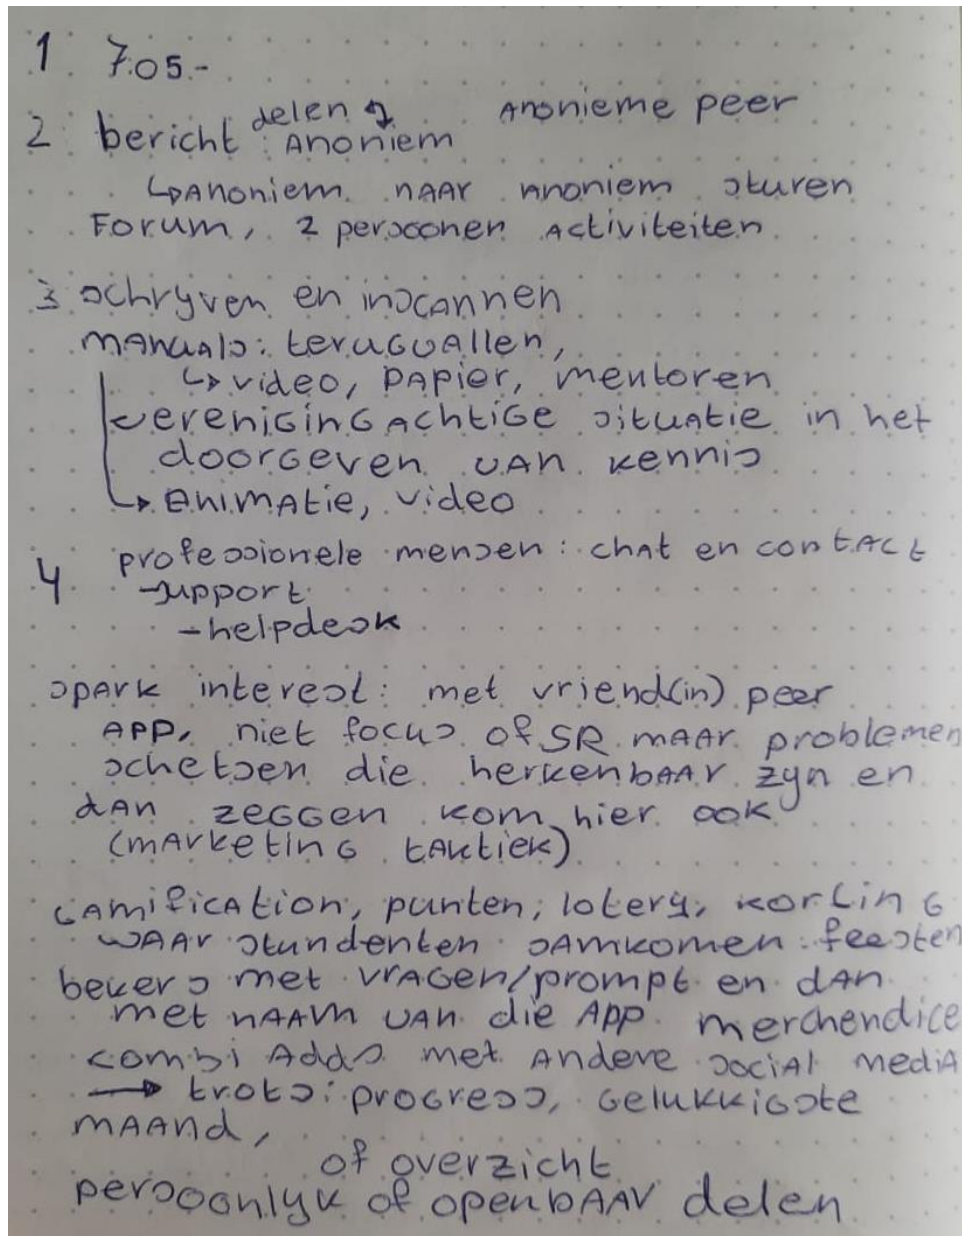 1 7.05.-
2 bericht delen Anonieme peer
anoniem
↳ Anoniem naar anoniem sturen
Forum, 2 persoonen activiteiten
3 schryven en inscannen
manuals: terugvallen,
↳ video, papier, mentoren
verenigingachtige situatie in het
doorgeven van kennis
↳ Animatie, video
4 professionele mensen: chat en contact
-support
-helpdesk
spark interest: met vriend(in) peer
App, niet focus of SR maar problemen
schetsen die herkenbaar zyn en
dan zeggen kom hier ook
(marketing taktiek)
Gamification, punten, lotery, korting
waar stundenten samkomen: feesten
bekers met vragen/prompt en dan
met naam van die App merchendice
combi Adds met andere social media
→ trots: progress, gelukkigste
maand,
of overzicht
persoonlyk of openbaar delen